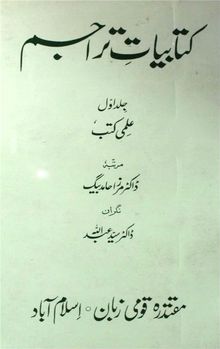 کتابیاتِ تراجم
جلد اوّل
علمی کتب
مرتبہ
ڈاکٹر مرزا حامد بیگ
نگران
ڈاکٹر سیّد عبداللہ
مقتدرہ قومی زبان ○ اسلام آباد